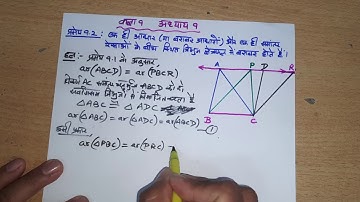 कक्षा 9 अध्याय 9
प्रमेय 9.2: एक ही आधार (या बराबर आधारों) और एक ही समांतर
रेखाओं के बीच स्थित त्रिभुज क्षेत्रफल में बराबर होते हैं।
हल:- प्रमेय 9.1 के अनुसार,
ar(ABCD) = ar(PBCR)
AC समांतर चतुर्भुज ABCD को दो
सर्वांगसम त्रिभुजों में विभाजित करता है
△ABC ≅ △ADC
ar(△ABC) = ar(△ADC) = ar(ABCD) ①
इसी प्रकार,
ar(△PBC) = ar(PRC) =
A P D R
B C